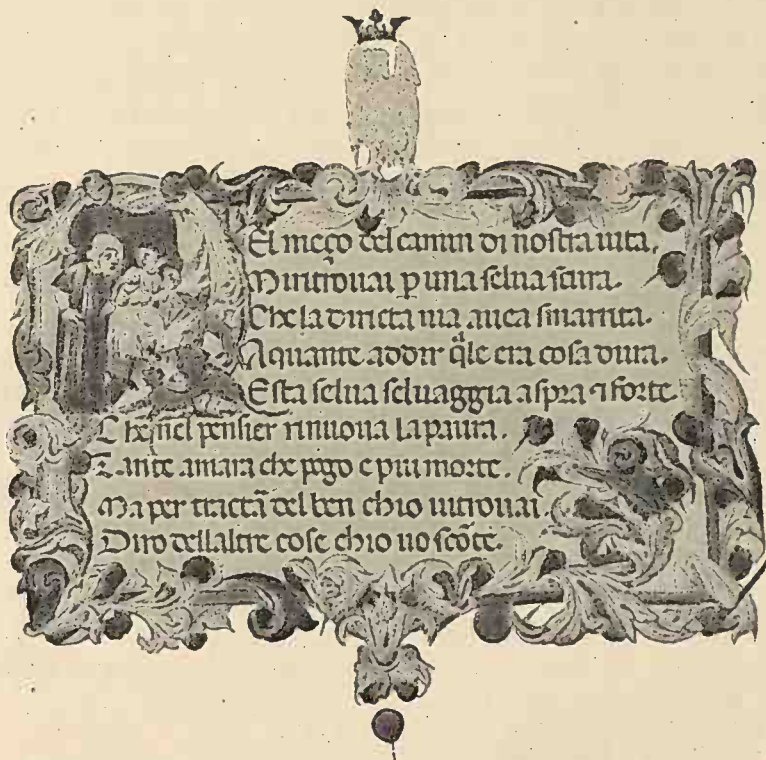 El meço del camin di nostra uita,
Mi ritrouai p una selua scura.
Che la diricta uia auea smarrita.
A quante addir q̄le era cosa dura.
Esta selua seluaggia aspra ⁊ forte.
Che nel pensier rinuoua la paura.
Tante amara che pogo e piu morte.
Ma per tractā del ben chio uitrouai
Diro dellaltre cose chio uo scōte.